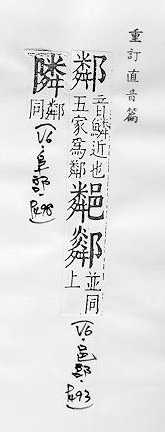 重訂直音篇
鄰音鱗近也五家爲鄰並同上
(V6·邑部·P493)
隣鄰同
(V6·阜部·P498)